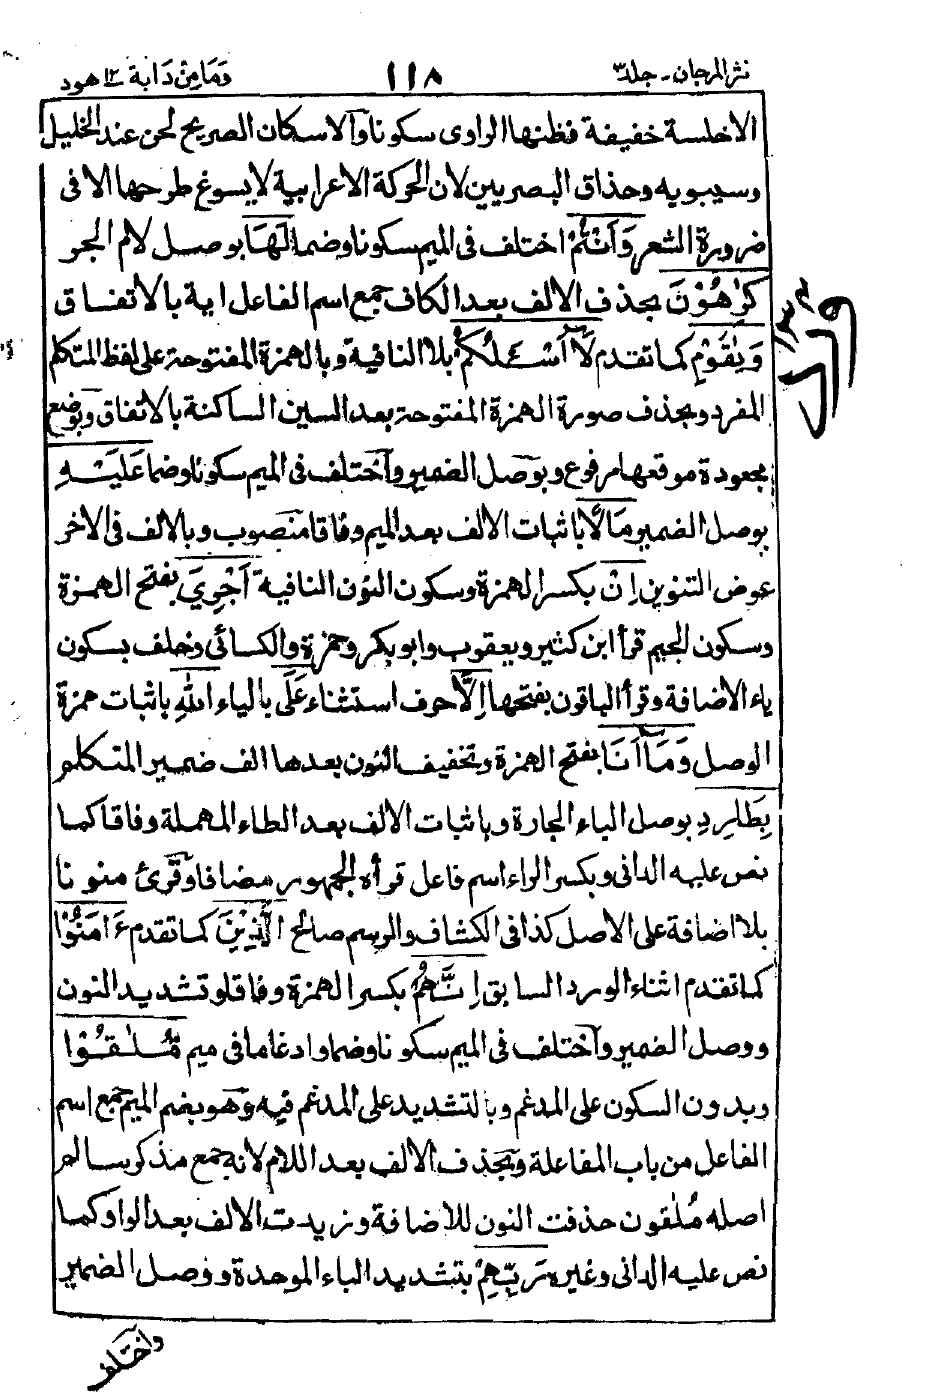 نثر المرجان ـ جلد ٣
١١٨
وَمَا مِنْ دَابة ١٢ هود
الاخلسة خفيفة فظنها الراوى سكونا وآلاسكان الصريح لحن عند الخليل
وسيبويه وحذاق البصريين لان الحركة الاعرابية لا يسوغ طرحها الا فى
ضرورة الشعر وَاَنْتُمْ اختلف فى الميم سكونا وضما لَهَا بوصل لام الجر
كٰرِهُوْنَ بحذف الالف بعد الكاف جمع اسم الفاعل اية بالاتفاق
وَيٰقَوْمِ كما تقدم لَآ اَسْـَٔلُكُمْ بلا النافية وبالهمزة المفتوحة على لفظ المتكلم
المفرد وبحذف صورة الهمزة المفتوحة بعد السين الساكنة بالاتفاق وبوضع
مجعودة موقعها مرفوع وبوصل الضمير وآختلف فى الميم سكونا وضما عَلَيْهِ
بوصل الضمير مَالًا باثبات الالف بعد الميم وفاقا منصوب وبالالف فى الاخر
عوض التنوين اِنْ بكسر الهمزة وسكون النون النافية اَجْرِيَ بفتح الهمزة
وسكون الجيم قرأ ابن كثير ويعقوب وابو بكر وحمزة والكسائى وخلف بسكون
ياء الاضافة وقرأ الباقون بفتحها اِلَّا حرف استثناء عَلَى بالياء اللّٰهِ باثبات همزة
الوصل وَمَآ اَنَا بفتح الهمزة وتخفيف النون بعدها الف ضمير المتكلم
بِطَارِدِ بوصل الباء الجارة وباثبات الالف بعد الطاء المهملة وفاقا كما
نص عليه الدانى وبكسر الراء اسم فاعل قرأه الجمهور مضافا وَقرئ منونا
بلا اضافة على الاصل كذا فى الكشاف والرسم صالح الَّذِيْنَ كما تقدم ءَامَنُوْا
كما تقدم اثناء الورد السابق اِنَّهُمْ بكسر الهمزة وفاقا وتشديد النون
ووصل الضمير وآختلف فى الميم سكونا وضما وادغاما فى ميم مُّلٰقُوْا
وبدون السكون على المدغم وبالتشديد على المدغم فيه وهو بضم الميم جمع اسم
الفاعل من باب المفاعلة وبحذف الالف بعد اللام لانه جمع مذكر سالم
اصله مُلٰقون حذفت النون للاضافة وزيدت الالف بعد الواو كما
نص عليه الدانى وغيره رَبِّهِمْ بتشديد الباء الموحدة ووصل الضمير
واختلف